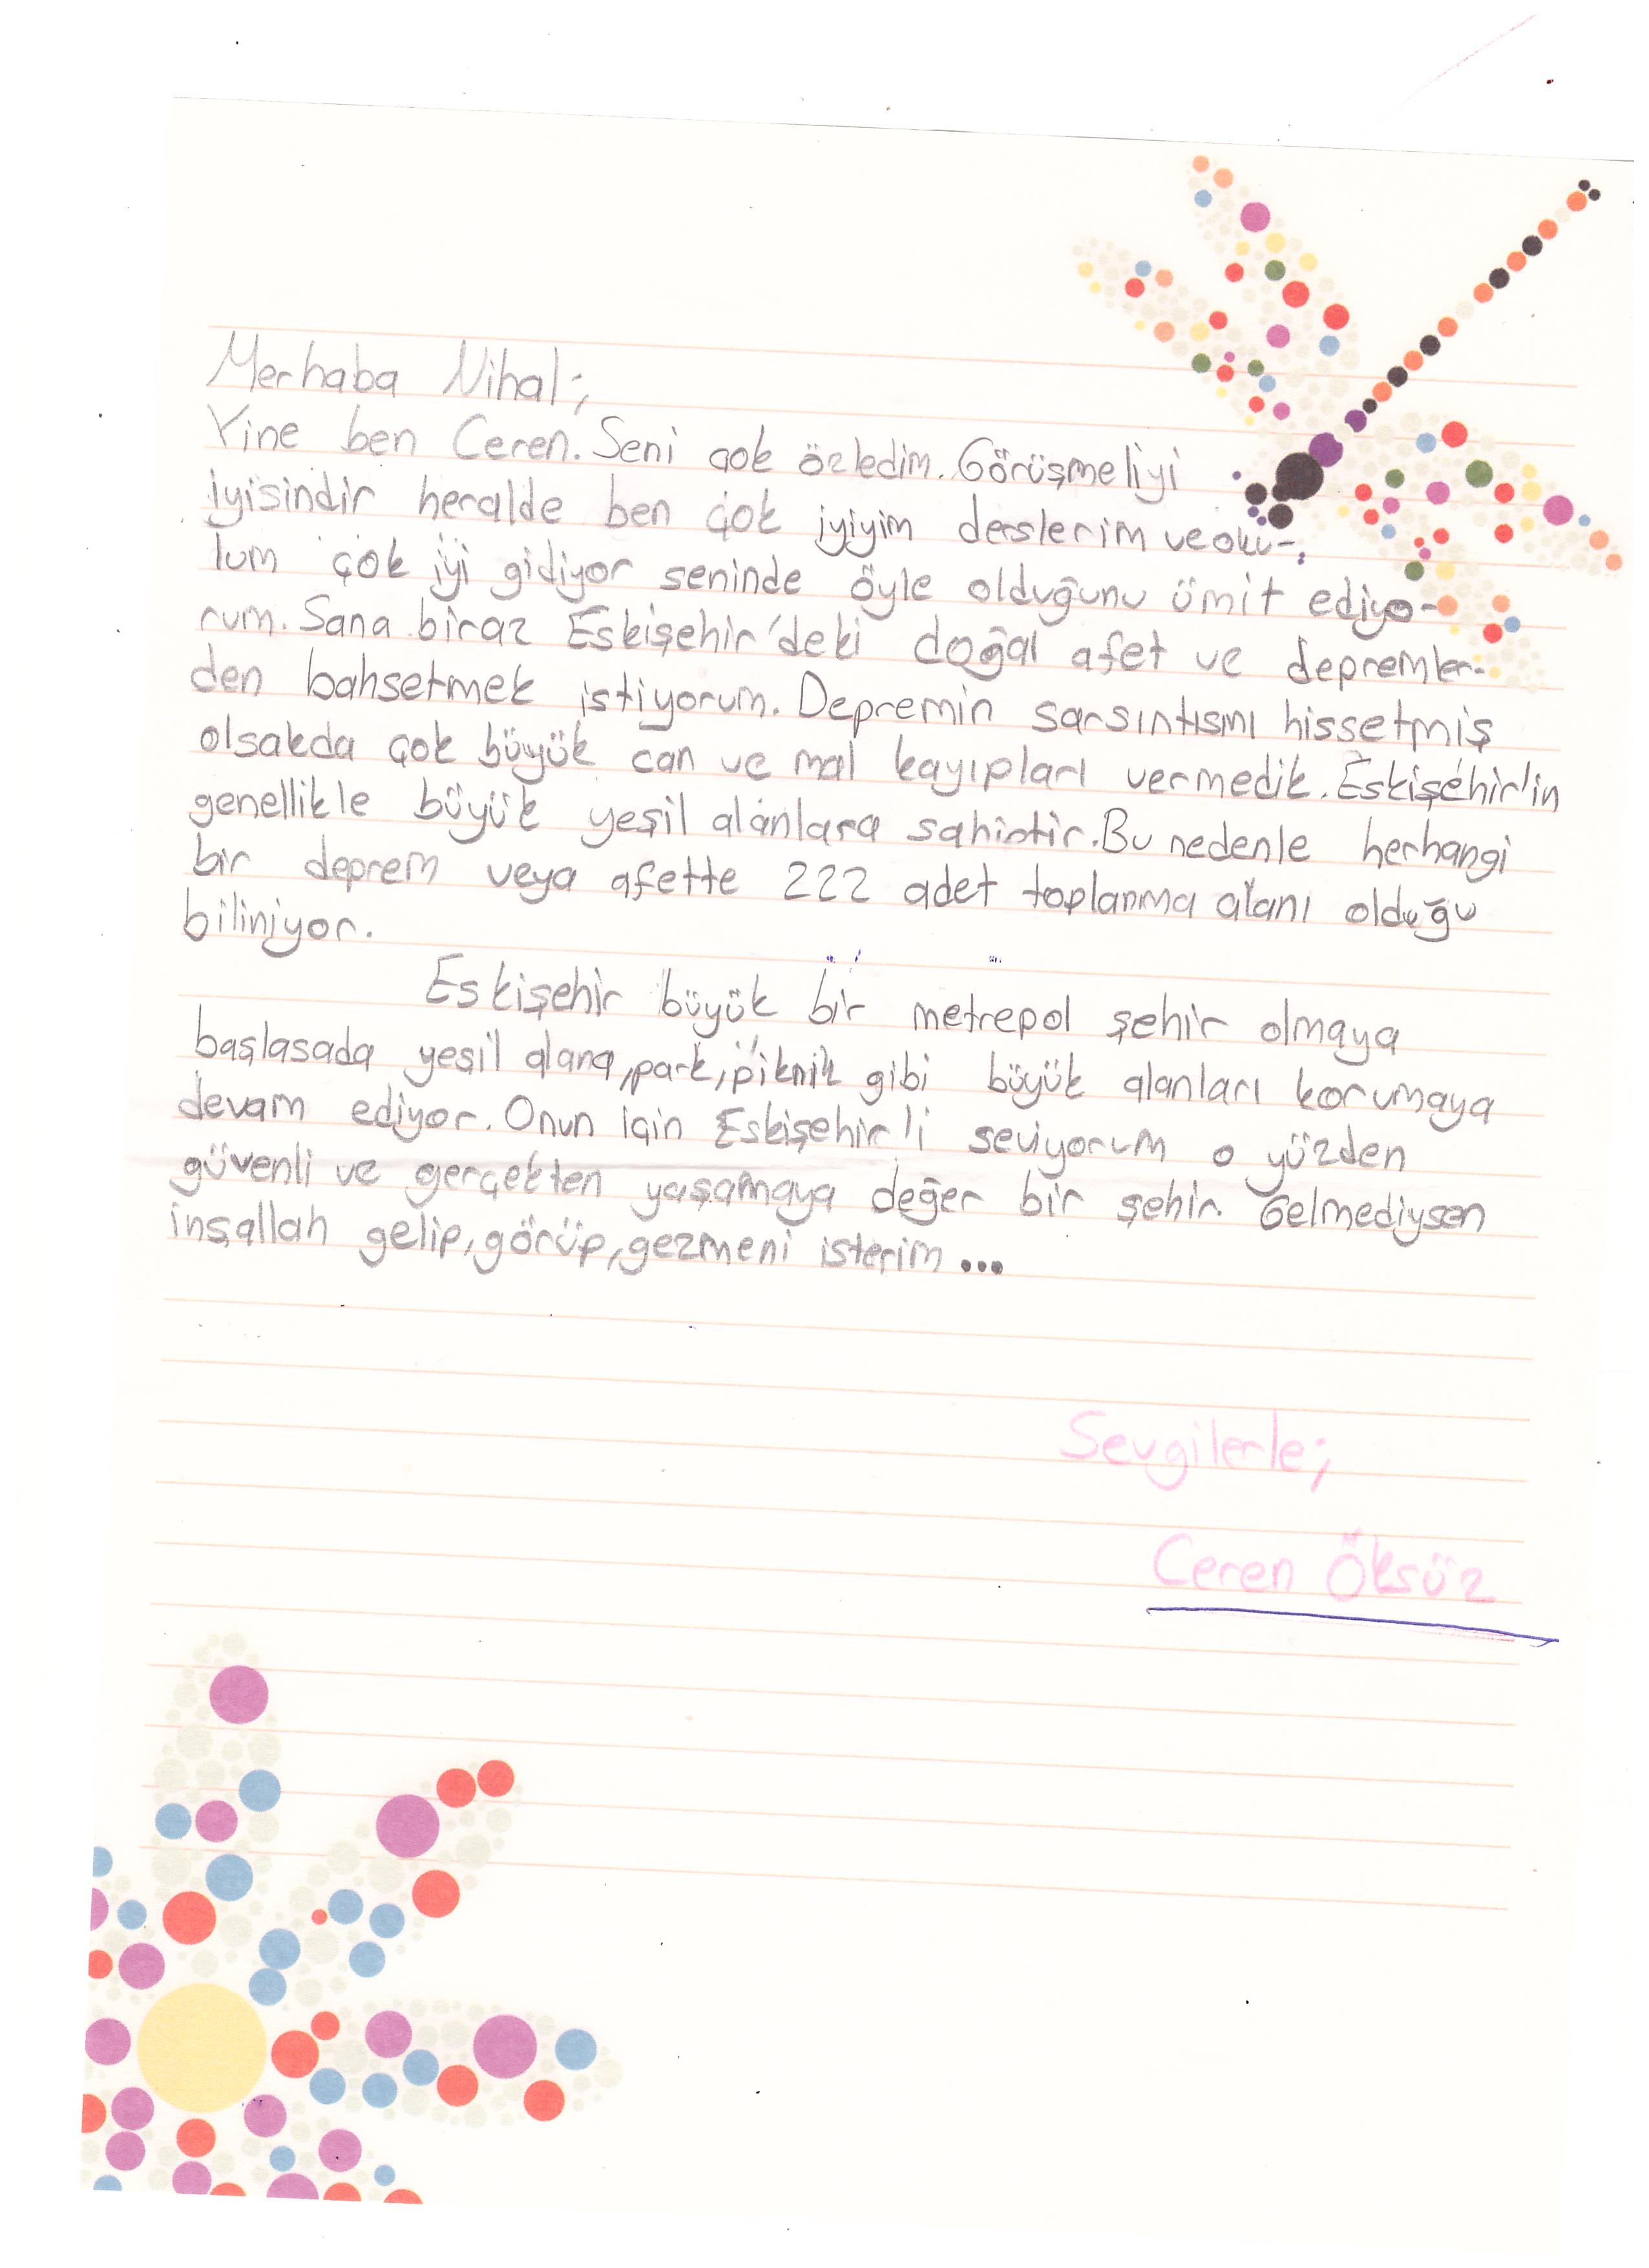 Merhaba Nihal;
Yine ben Ceren. Seni çok özledim. Görüşmeliyi
iyisindir heralde ben çok iyiyim derslerim ve oku-
lum çok iyi gidiyor seninde öyle olduğunu ümit ediyo-
rum. Sana biraz Eskişehir'deki doğal afet ve depremler-
den bahsetmek istiyorum. Depremin sarsıntısını hissetmiş
olsakda çok büyük can ve mal kayıpları vermedik. Eskişehir'in
genellikle büyük yeşil alanlara sahiptir. Bu nedenle herhangi
bir deprem veya afette 222 adet toplanma alanı olduğu
biliniyor.
Eskişehir büyük bir metrepol şehir olmaya
başlasada yeşil alana, park, piknik gibi büyük alanları korumaya
devam ediyor. Onun için Eskişehir'i seviyorum o yüzden
güvenli ve gerçekten yaşamaya değer bir şehir. Gelmediysen
inşallah gelip, görüp, gezmeni isterim...
Sevgilerle;
Ceren Öksüz